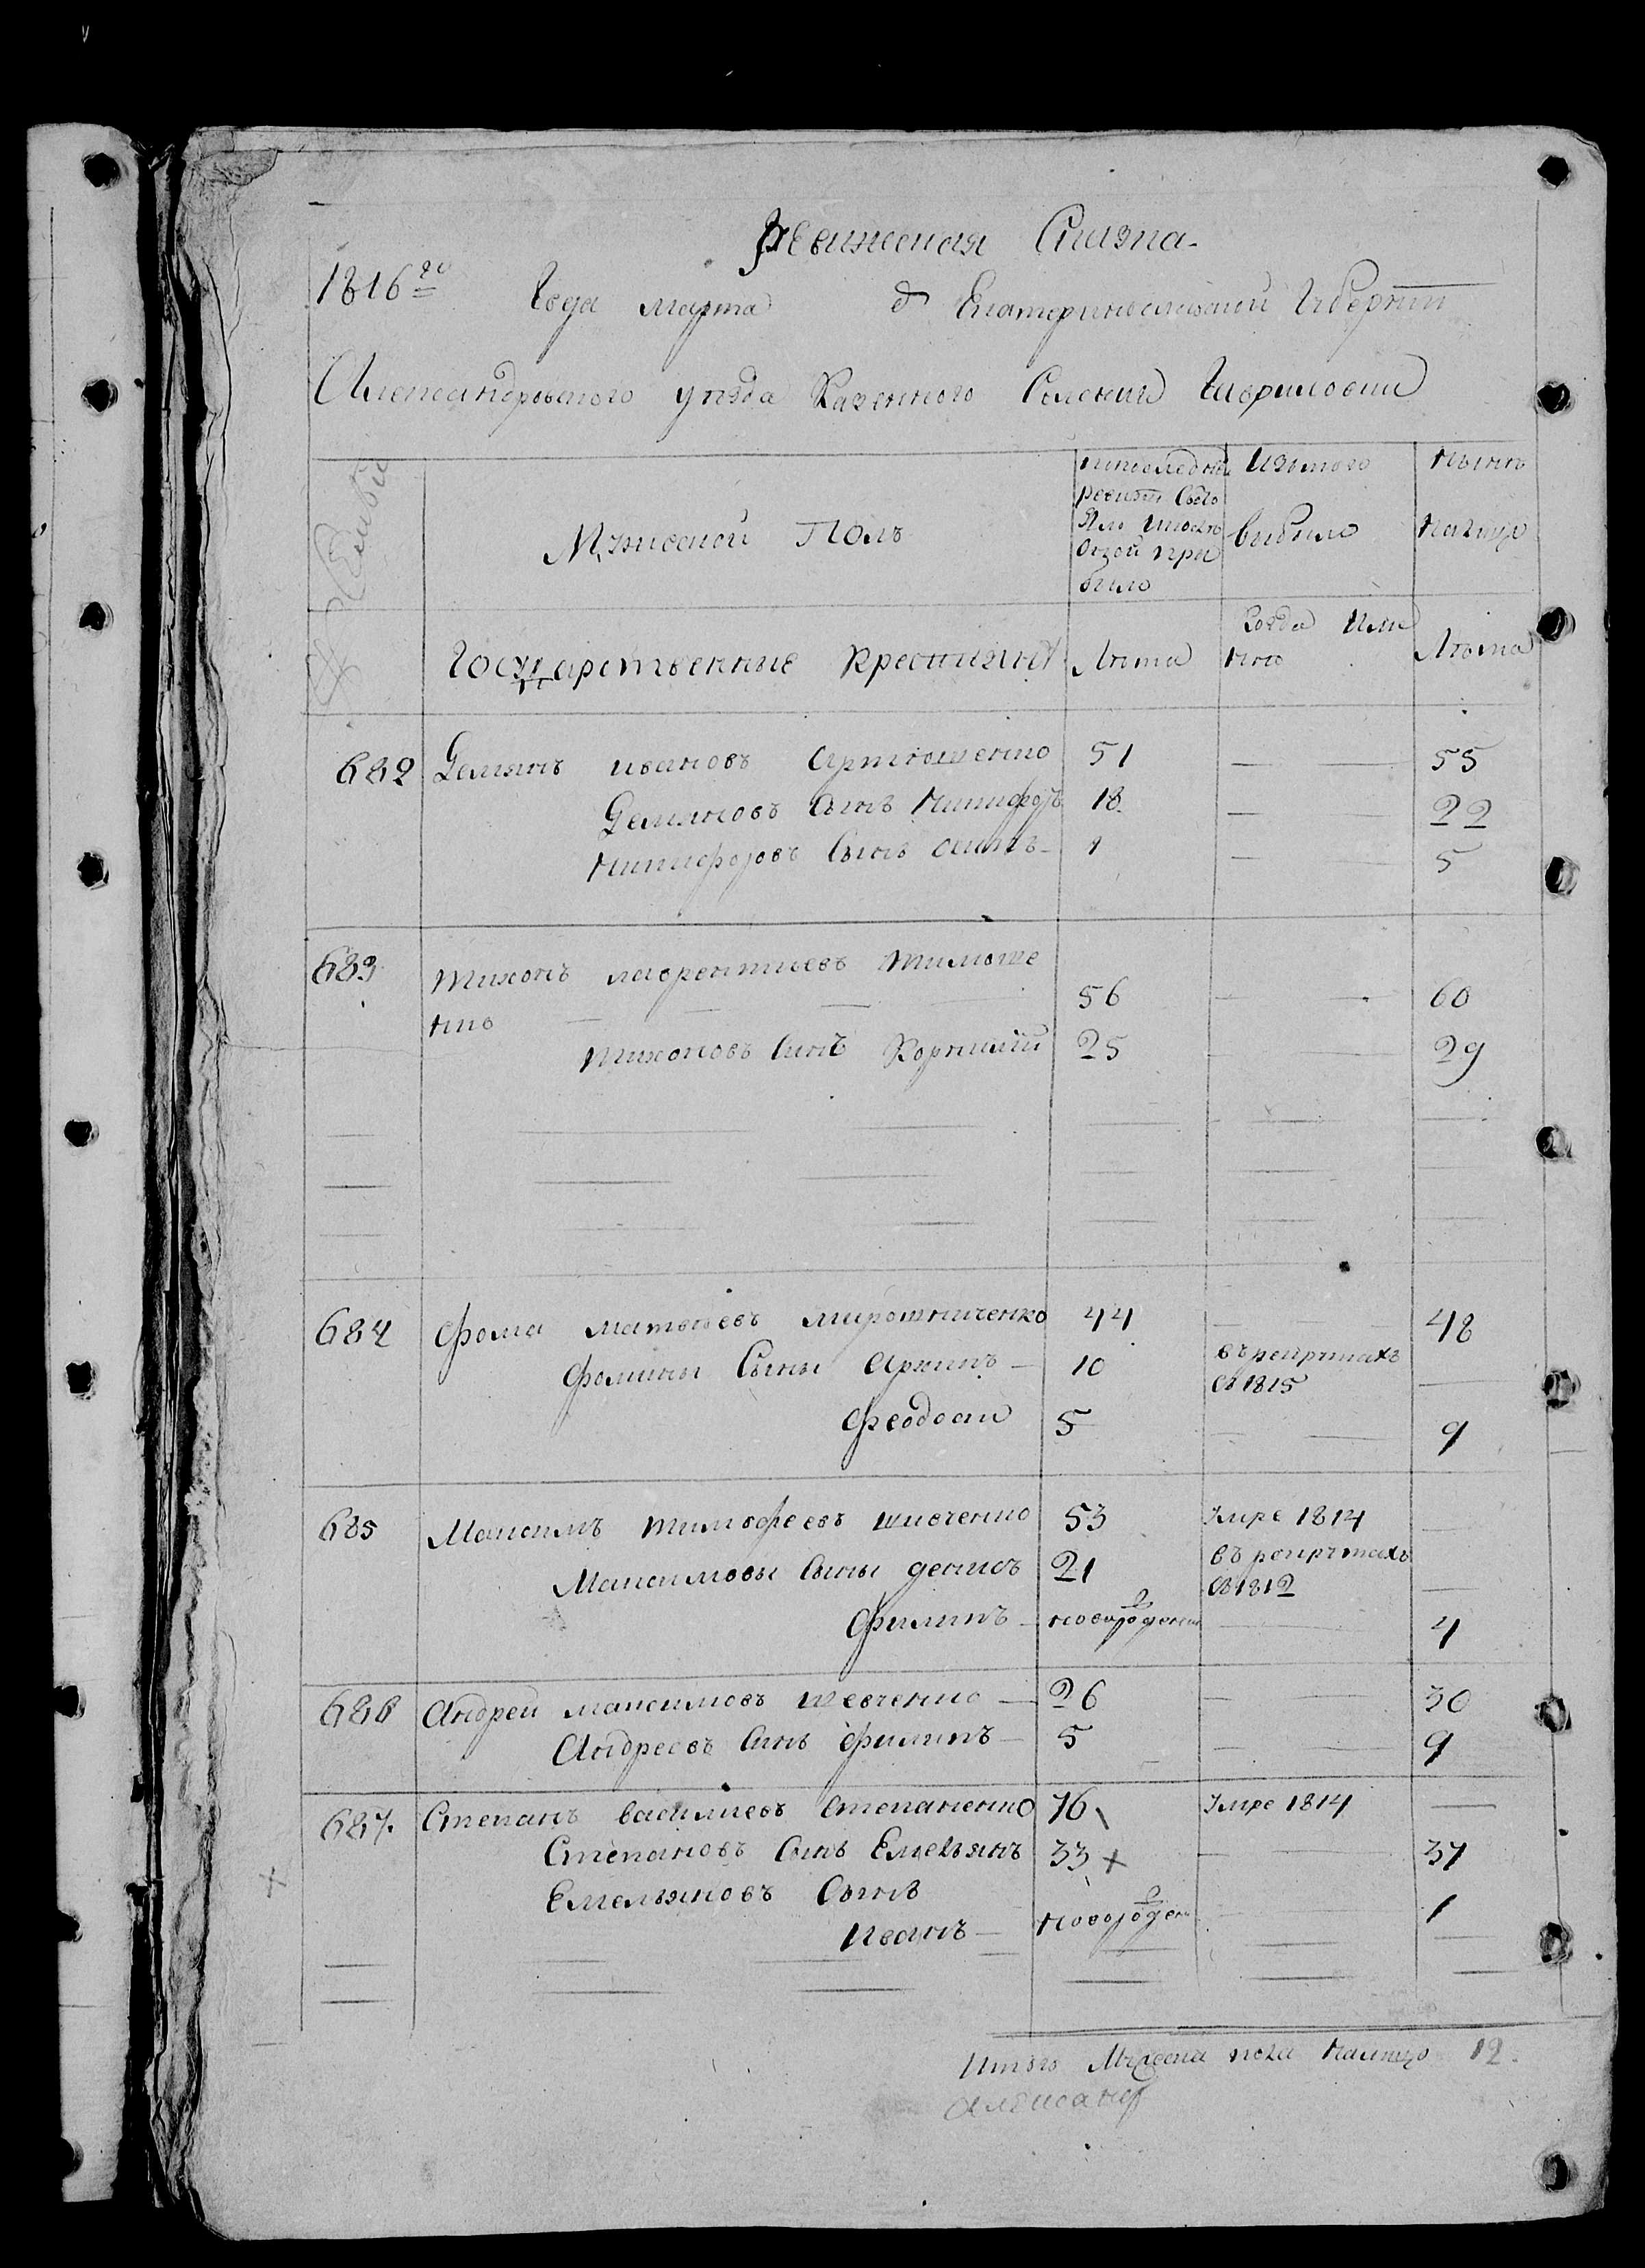 Ревижская Сказка
1816го Года марта д Екатеринославской Губернии
Александровского уезда Казенного Селения Гавриловки
Мужеской Полъ
Изтого выбыло
ныне налицо
Государственные крестияны
Лета
Когда Имянно
Лета
682 Демянъ ивановъ Артюшенко 51 — 55
Демяновъ Сынъ Никифоръ 18 — 22
Никифоровъ Сынъ осипъ 1 — 5
683 Тихонъ лаврентиевъ Тимоше
нко — — 56 — 60
Тихоновъ Синъ Корнилий 25 — 29
684 Фома матвеевъ мирошниченко 44 — 48
Фомины Сыны Архипъ — 10 въ рекрутахъ съ 1815 —
Феодоси 5 — 9
685 Максимъ тимофеевъ шивченко 53 Умре 1814 —
Максимовы Сыны денисъ 21 въ рекрутахъ съ 1812 —
Филипъ — новорожденни — 4
686 Андрей максимовъ шевченко — 26 — 30
Андреевъ Синъ Филипъ — 5 — 9
687. Степанъ василиевъ Степаненко 76 Умре 1814 —
Степановъ Сынъ Емельянъ 33 + — 37
Емельяновъ Сынъ
Иванъ — новорожден — 1
Итого Мужеска пола налицо 12.